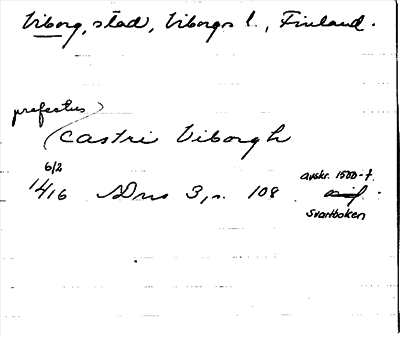 Viborg, stad, Viborgs l., Finland.
prefectus
castri Viborgh
6/2
1416 SDns 3, s. 108 avskr. 1500-t.
Svartboken